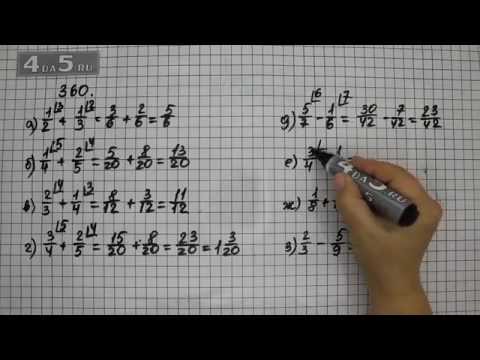 4DA5.RU
360.
а) 1/2 ⌊3 + 1/3 ⌊2 = 3/6 + 2/6 = 5/6
б) 1/4 ⌊5 + 2/5 ⌊4 = 5/20 + 8/20 = 13/20
в) 2/3 ⌊4 + 1/4 ⌊3 = 8/12 + 3/12 = 11/12
г) 3/4 ⌊5 + 2/5 ⌊4 = 15/20 + 8/20 = 23/20 = 1 3/20
д) 5/7 ⌊6 - 1/6 ⌊7 = 30/42 - 7/42 = 23/42
е) 3/4
ж) 1/8 +
з) 2/3 - 5/9 =
4DA5